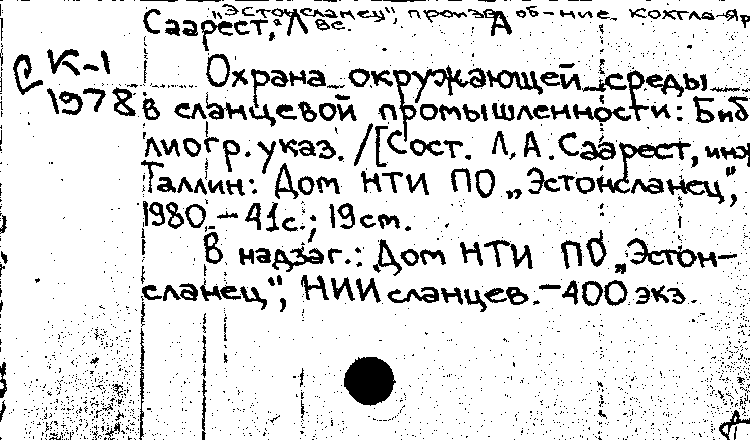 „Эстонсланец", произв. об-ние. Кохтла-Яр
Саарест, Л А
вс.
К-1
1978
Охрана окружающей среды
в сланцевой промышленности: Биб
лиогр. указ. /[Сост. Л.А. Саарест, инж
Таллин: Дом НТИ ПО „Эстонсланец",
1980. – 41с.; 19 cm.
В надзаг.: Дом НТИ ПО „Эстон-
сланец", НИИ сланцев. – 400 экз.